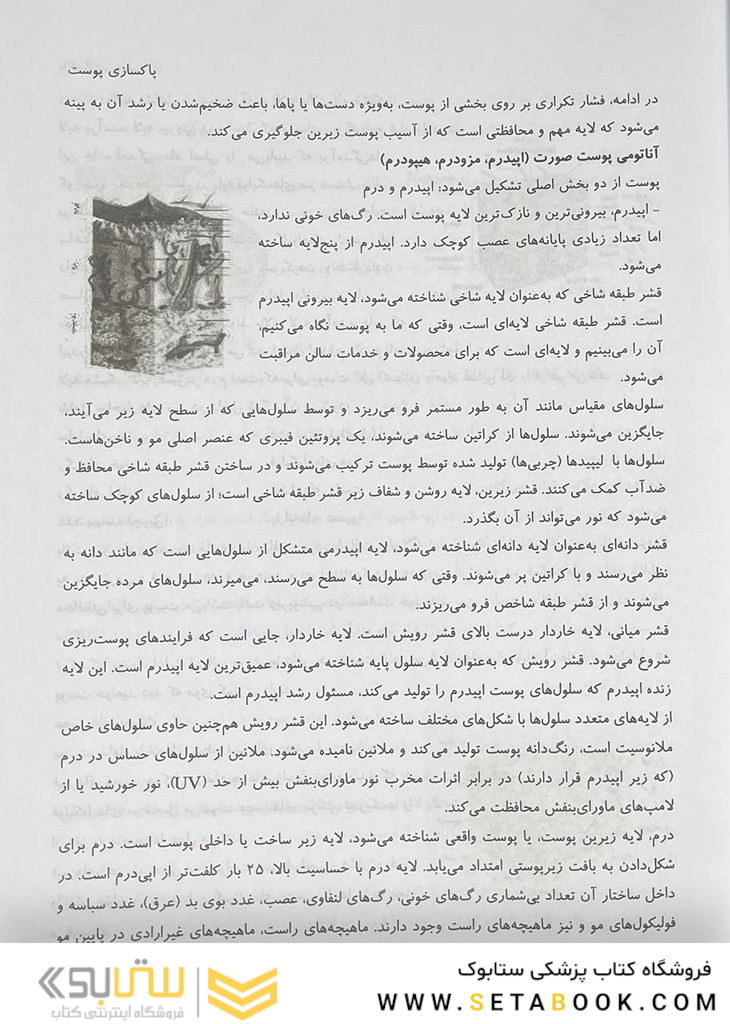 پاکسازی پوست
در ادامه، فشار تکراری بر روی بخشی از پوست، به‌ویژه دست‌ها یا پاها، باعث ضخیم‌شدن یا رشد آن به پینه
می‌شود که لایه مهم و محافظتی است که از آسیب پوست زیرین جلوگیری می‌کند.
آناتومی پوست صورت (اپیدرم، مزودرم، هیپودرم)
پوست از دو بخش اصلی تشکیل می‌شود: اپیدرم و درم
– اپیدرم، بیرونی‌ترین و نازک‌ترین لایه پوست است. رگ‌های خونی ندارد،
اما تعداد زیادی پایانه‌های عصب کوچک دارد. اپیدرم از پنج‌لایه ساخته
می‌شود.
قشر طبقه شاخی که به‌عنوان لایه شاخی شناخته می‌شود، لایه بیرونی اپیدرم
است. قشر طبقه شاخی لایه‌ای است، وقتی که ما به پوست نگاه می‌کنیم،
آن را می‌بینیم و لایه‌ای است که برای محصولات و خدمات سالن مراقبت
می‌شود.
سلول‌های مقیاس مانند آن به طور مستمر فرو می‌ریزد و توسط سلول‌هایی که از سطح لایه زیر می‌آیند،
جایگزین می‌شوند. سلول‌ها از کراتین ساخته می‌شوند، یک پروتئین فیبری که عنصر اصلی مو و ناخن‌هاست.
سلول‌ها با لیپیدها (چربی‌ها) تولید شده توسط پوست ترکیب می‌شوند و در ساختن قشر طبقه شاخی محافظ و
ضدآب کمک می‌کنند. قشر زیرین، لایه روشن و شفاف زیر قشر طبقه شاخی است؛ از سلول‌های کوچک ساخته
می‌شود که نور می‌تواند از آن بگذرد.
قشر دانه‌ای به‌عنوان لایه دانه‌ای شناخته می‌شود، لایه اپیدرمی متشکل از سلول‌هایی است که مانند دانه به
نظر می‌رسند و با کراتین پر می‌شوند. وقتی که سلول‌ها به سطح می‌رسند، می‌میرند، سلول‌های مرده جایگزین
می‌شوند و از قشر طبقه شاخص فرو می‌ریزند.
قشر میانی، لایه خاردار درست بالای قشر رویش است. لایه خاردار، جایی است که فرایندهای پوست‌ریزی
شروع می‌شود. قشر رویش که به‌عنوان لایه سلول پایه شناخته می‌شود، عمیق‌ترین لایه اپیدرم است. این لایه
زنده اپیدرم که سلول‌های پوست اپیدرم را تولید می‌کند، مسئول رشد اپیدرم است.
از لایه‌های متعدد سلول‌ها با شکل‌های مختلف ساخته می‌شود. این قشر رویش هم‌چنین حاوی سلول‌های خاص
ملانوسیت است، رنگ‌دانه پوست تولید می‌کند و ملانین نامیده می‌شود. ملانین از سلول‌های حساس در درم
(که زیر اپیدرم قرار دارند) در برابر اثرات مخرب نور ماورای‌بنفش بیش از حد (UV)، نور خورشید یا از
لامپ‌های ماورای‌بنفش محافظت می‌کند.
درم، لایه زیرین پوست، یا پوست واقعی شناخته می‌شود، لایه زیر ساخت یا داخلی پوست است. درم برای
شکل‌دادن به بافت زیرپوستی امتداد می‌یابد. لایه درم با حساسیت بالا، ۲۵ بار کلفت‌تر از اپی‌درم است. در
داخل ساختار آن تعداد بی‌شماری رگ‌های خونی، رگ‌های لنفاوی، عصب، غدد بوی بد (عرق)، غدد سباسه و
فولیکول‌های مو و نیز ماهیچه‌های راست وجود دارند. ماهیچه‌های راست، ماهیچه‌های غیرارادی در پایین مو
فروشگاه کتاب پزشکی ستابوک
WWW.SETABOOK.COM
ستابوک
فروشگاه اینترنتی کتاب